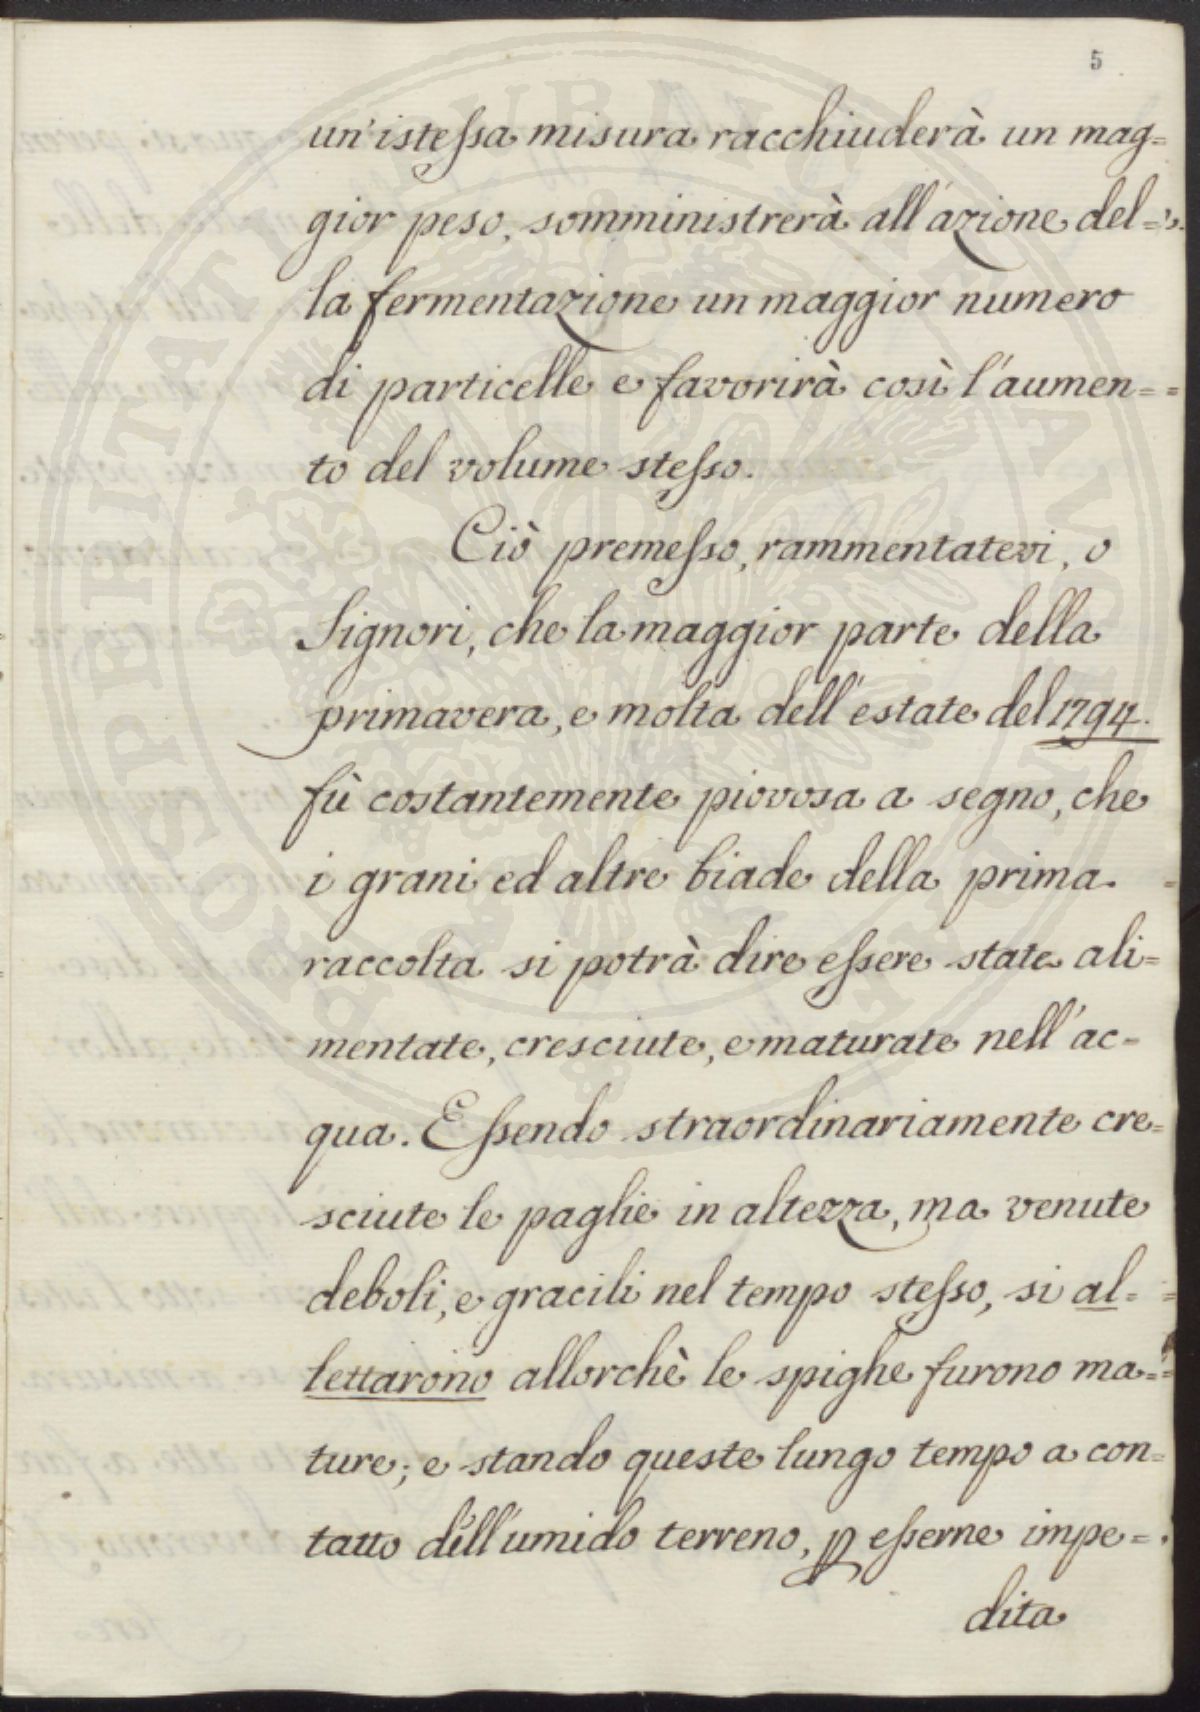 5
un'istessa misura racchiuderà un mag=
gior peso, somministrerà all'azione del=
la fermentazione un maggior numero
di particelle e favorirà così l'aumen=
to del volume stesso.
Ciò premesso, rammentatevi, o
Signori, che la maggior parte della
primavera, e molta dell'estate del 1794.
fù costantemente piovosa a segno, che
i grani ed altre biade della prima
raccolta si potrà dire essere state ali=
mentate, cresciute, e maturate nell'ac=
qua. Essendo straordinariamente cre=
sciute le paglie in altezza, ma venute
deboli, e gracili nel tempo stesso, si al=
lettarono allorchè le spighe furono ma=
ture; e stando queste lungo tempo a con=
tatto dell'umido terreno, p esserne impe=
dita
PROSPERITATI PUBLICAE AUGENDAE